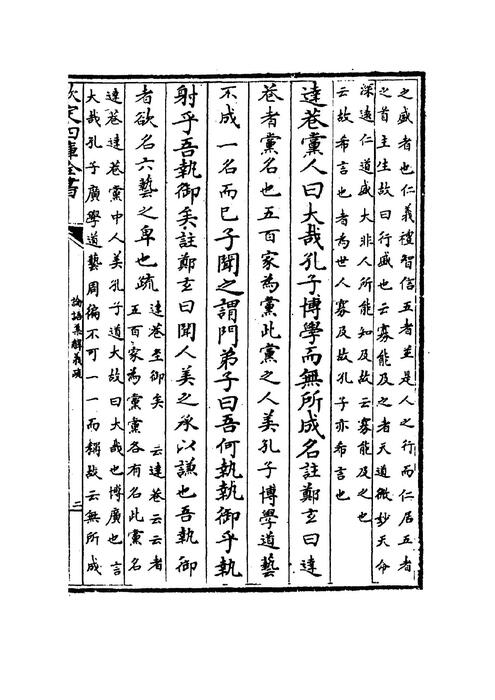 之盛者也仁義禮智信五者並是人之行而仁居五者
之首主生故曰行盛也云寡能及之者天道微妙天命
深遠仁道盛大非人所能知及故云寡能及之也
云故希言也者為世人寡及故孔子亦希言也
達巷黨人曰大哉孔子博學而無所成名註鄭玄曰達
巷者黨名也五百家為黨此黨之人美孔子博學道藝
不成一名而已子聞之謂門弟子曰吾何執執御乎執
射乎吾執御矣註鄭玄曰聞人美之承以謙也吾執御
者欲名六藝之卑也疏
達巷至御矣 云達巷云云者
五百家為黨黨各有名此黨名
達巷達巷黨中人美孔子道大故曰大哉也博廣也言
大哉孔子廣學道藝周徧不可一一而稱故云無所成
欽定四庫全書
論語集解義疏
二